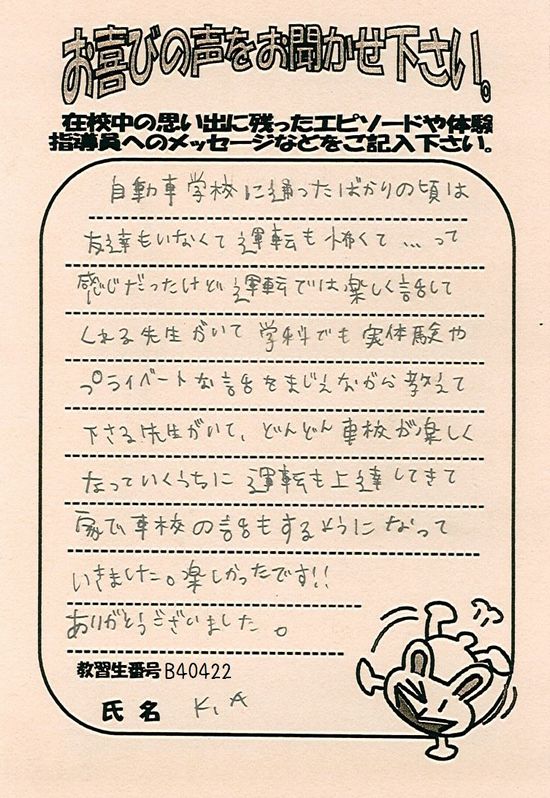 お喜びの声をお聞かせ下さい。
在校中の思い出に残ったエピソードや体験
指導員へのメッセージなどをご記入下さい。
自動車学校に通ったばかりの頃は
友達もいなくて運転も怖くて…って
感じだったけど運転では楽しく話して
くれる先生がいて学科でも実体験や
プライベートな話をまじえながら教えて
下さる先生がいて、どんどん車校が楽しく
なっていくうちに運転も上達してきて
家で車校の話もするようになって
いきました。楽しかったです!!
ありがとうございました。
教習生番号 B40422
氏名 K.A